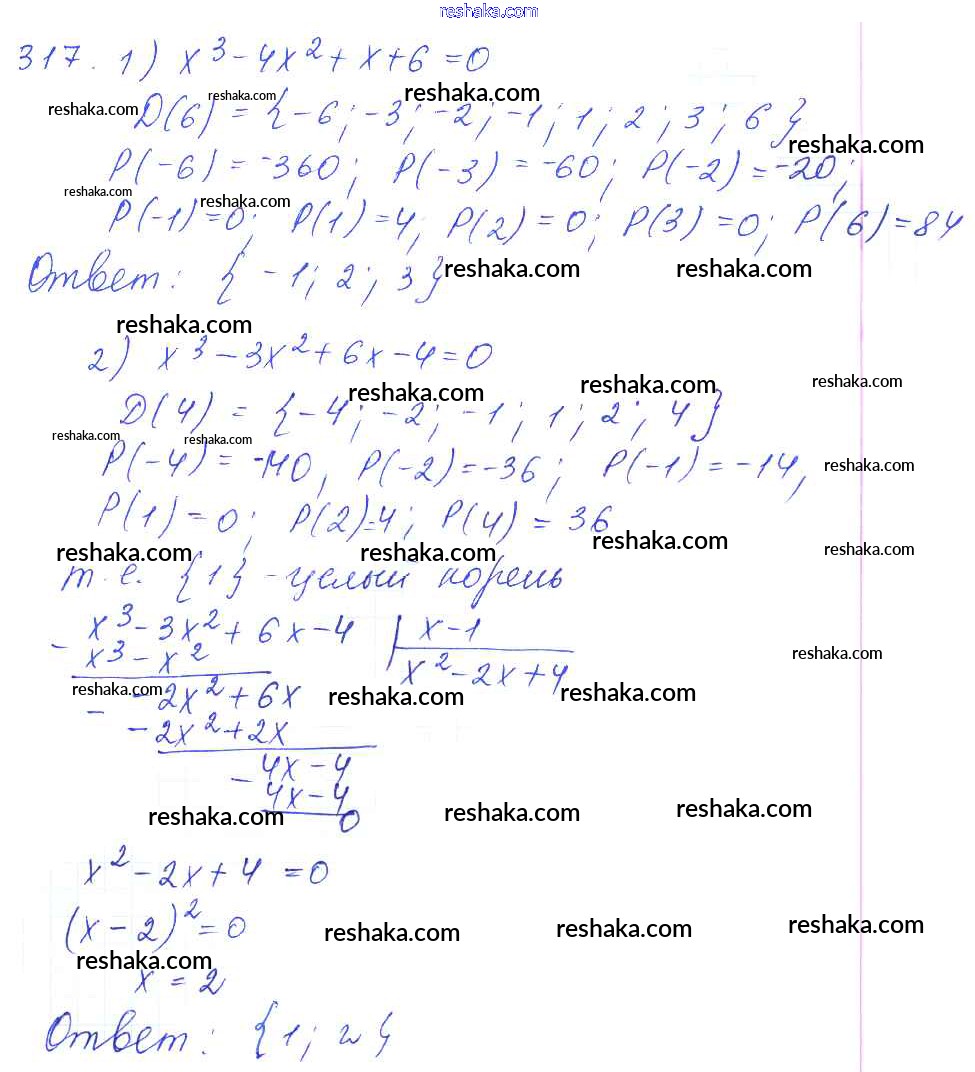 reshaka.com
317. 1) x³ - 4x² + x + 6 = 0
reshaka.com reshaka.com reshaka.com
D(6) = {-6; -3; -2; -1; 1; 2; 3; 6}
reshaka.com
P(-6) = -360; P(-3) = -60; P(-2) = -20;
reshaka.com reshaka.com
P(-1) = 0; P(1) = 4, P(2) = 0; P(3) = 0; P(6) = 84
Ответ: {-1; 2; 3}
reshaka.com reshaka.com
reshaka.com
2) x³ - 3x² + 6x - 4 = 0
reshaka.com reshaka.com reshaka.com
D(4) = {-4; -2; -1; 1; 2; 4}
reshaka.com reshaka.com
P(-4) = -140, P(-2) = -36; P(-1) = -14,
reshaka.com
P(1) = 0; P(2) = 4; P(4) = 36
reshaka.com reshaka.com reshaka.com reshaka.com
т.е. {1} - целый корень
x³ - 3x² + 6x - 4 | x - 1
- x³ - x² x² - 2x + 4
reshaka.com
reshaka.com reshaka.com reshaka.com
- -2x² + 6x
-2x² + 2x
- 4x - 4
4x - 4
0
reshaka.com reshaka.com reshaka.com
x² - 2x + 4 = 0
(x - 2)² = 0
reshaka.com reshaka.com reshaka.com
reshaka.com
x = 2
Ответ: {1; 2}